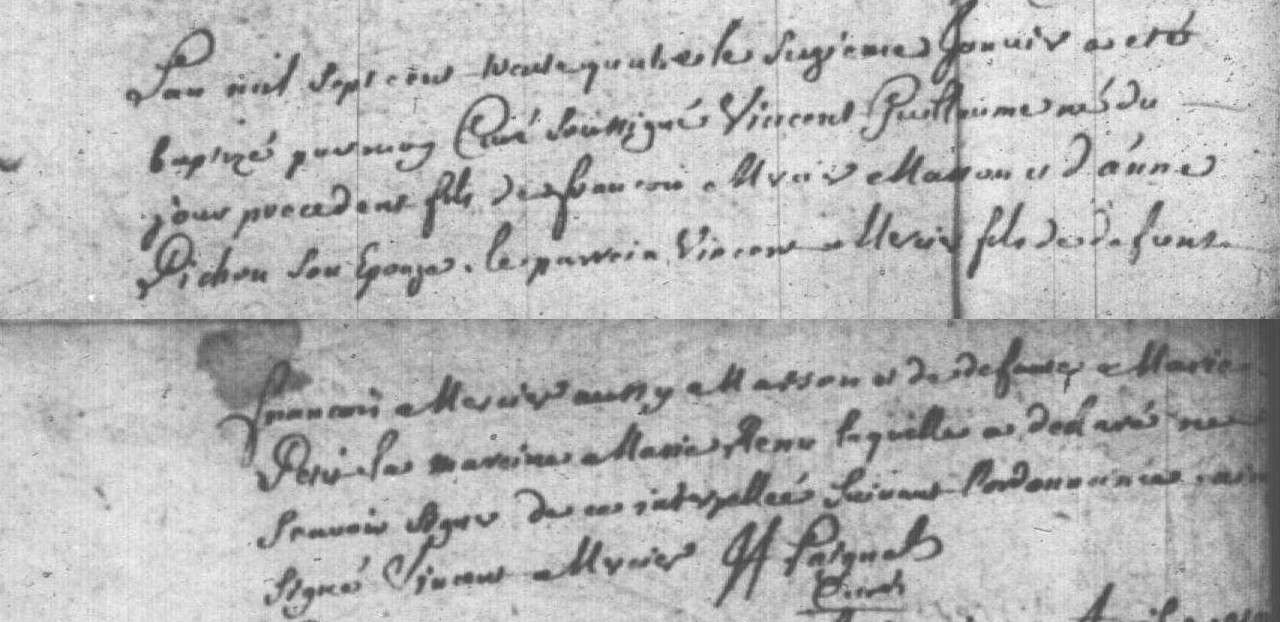 L'an mil sept cent trente quatre le seizieme Janvier a eté
baptizé par moy Curé soussigné Vincent Guillaume né du
jour precedent fils de francois Mercier Masson et d'anne
Pichon son Epouze. le parrein Vincent Mercier fils de defunt
francois Mercier aussy Masson et de defunte Marie
Petit la mareine Marie laquelle a declaré ne
scavoir signer de ce interpellée suivant l'ordonnance
signé Vincent Mercier